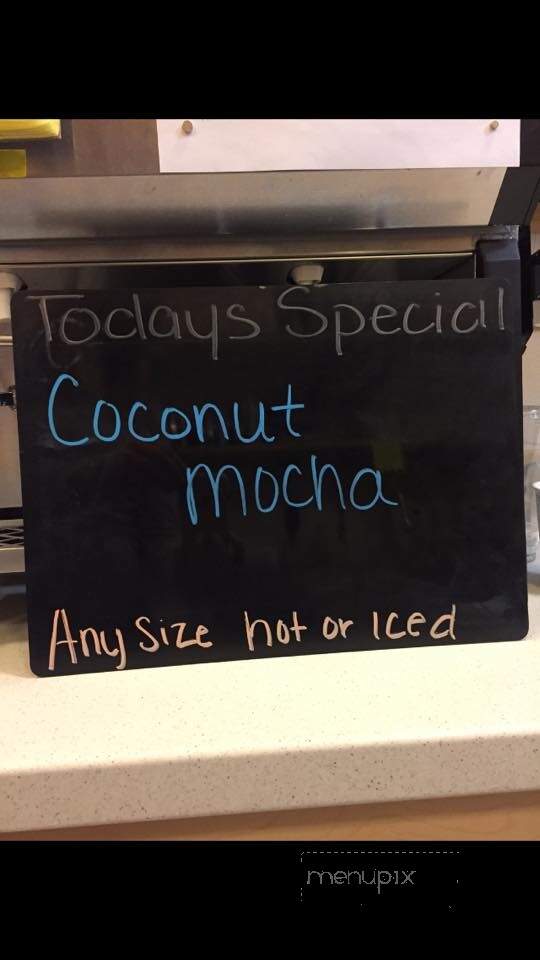 Todays Special
Coconut
mocha
Any Size hot or Iced
menupix